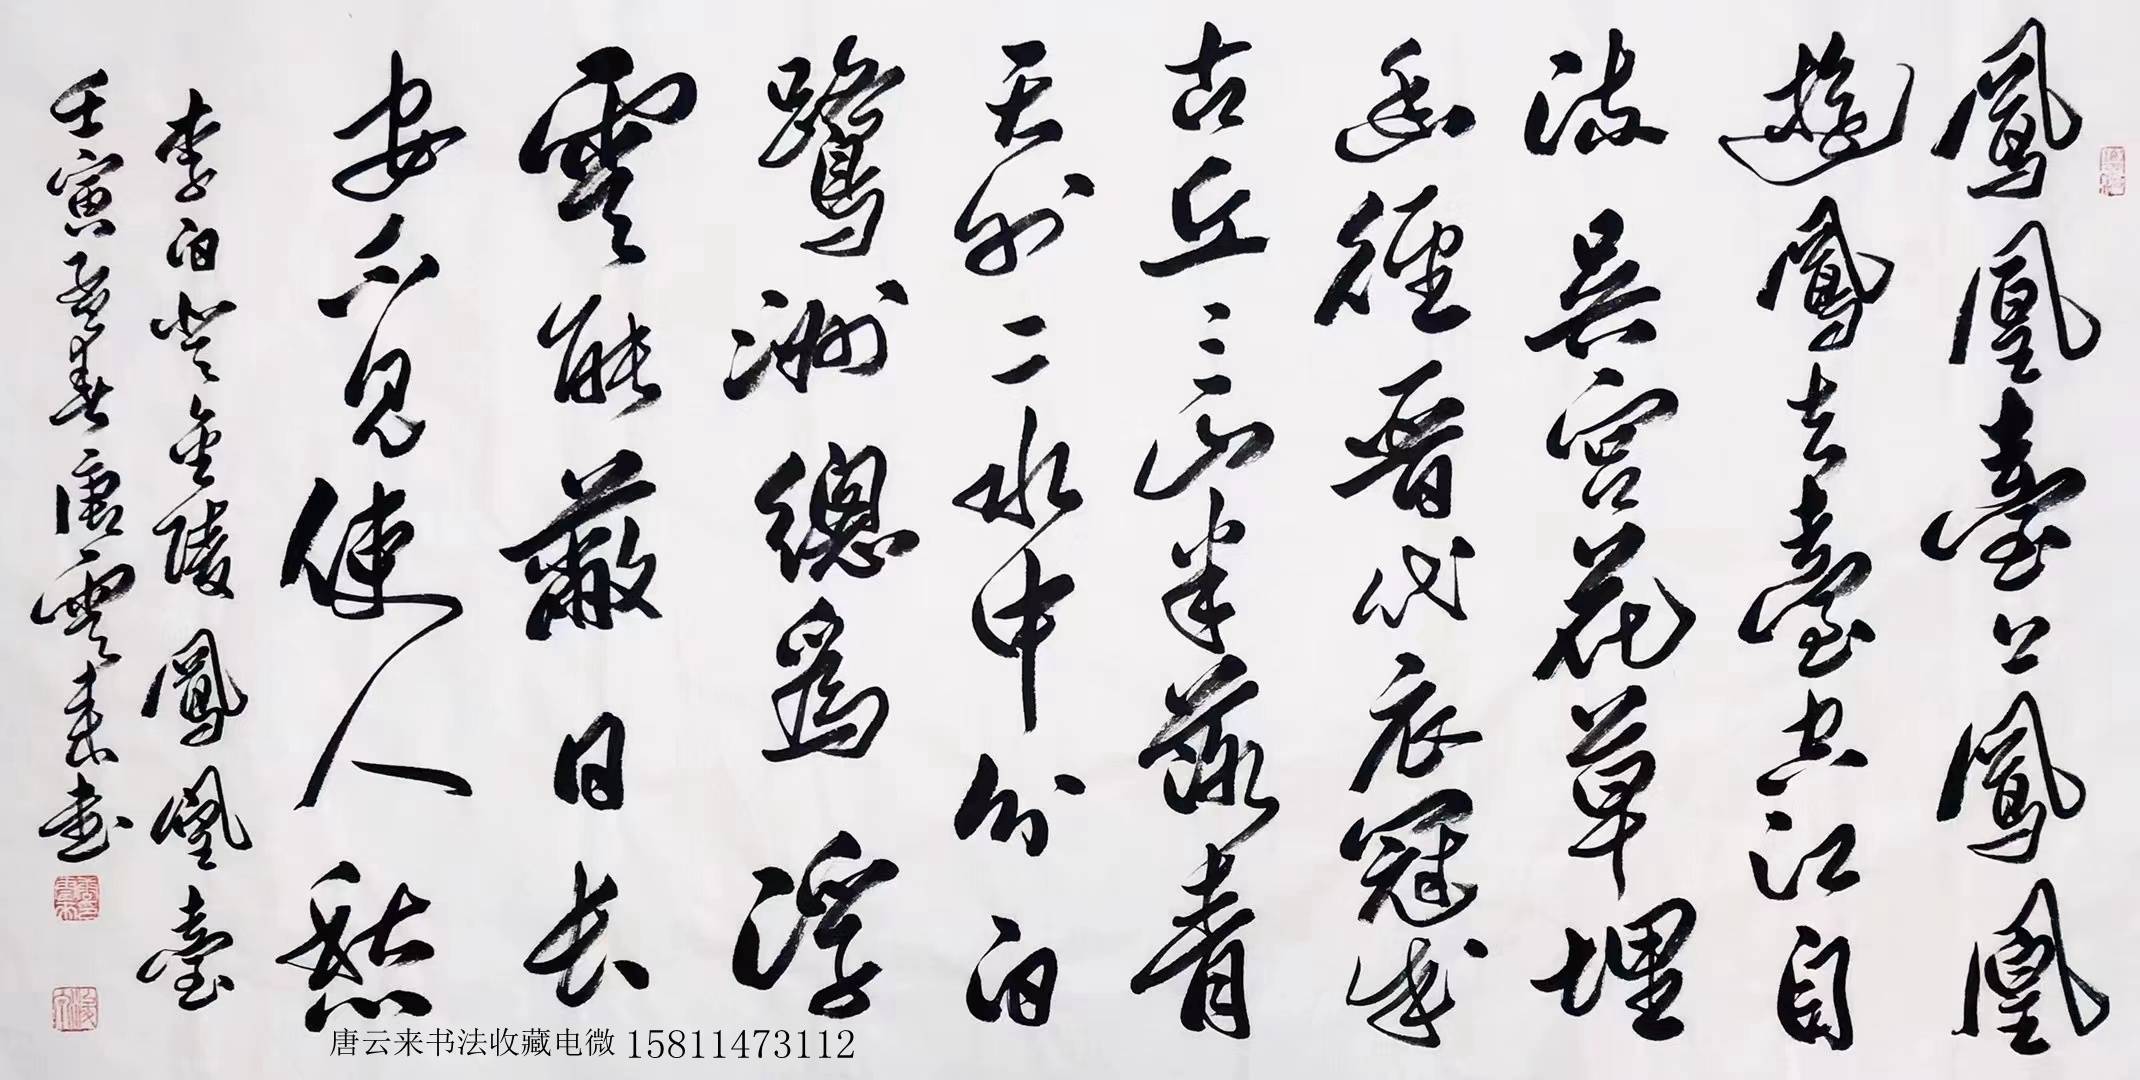 鳳凰臺上鳳凰
遊鳳去臺空江自
流吳宮花草埋
幽徑晉代衣冠成
古丘三山半落青
天外二水中分白
鷺洲總為浮
雲能蔽日長
安不見使人愁
李白登金陵鳳凰臺
壬寅孟春唐雲來書
唐云来书法收藏电微 15811473112